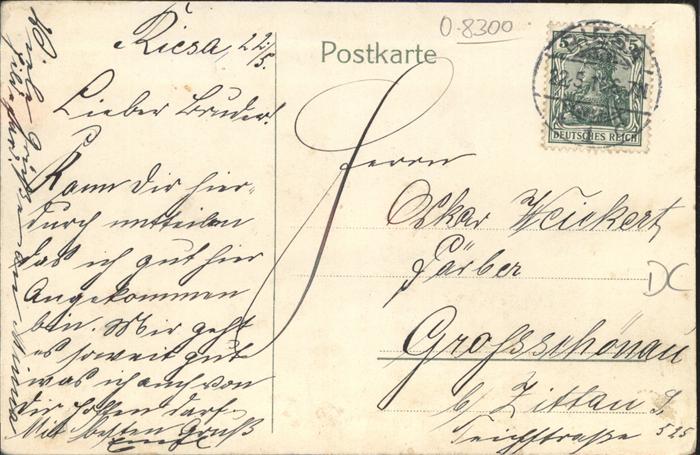 O-8300
Postkarte
DEUTSCHES REICH
Riesa, 22/5.
Lieber Bruder!
Kann Dir hier-
durch mitteilen
das ich gut hier
Angekommen
bin. Mir geht
es soweit gut
was ich auch von
Dir hoffen darf
Mit besten Gruß
Viele Grüße an
Herrn
Oskar Weickert
Färber
Grossschönau
b/ Zittau
Teichstraße 525
DC